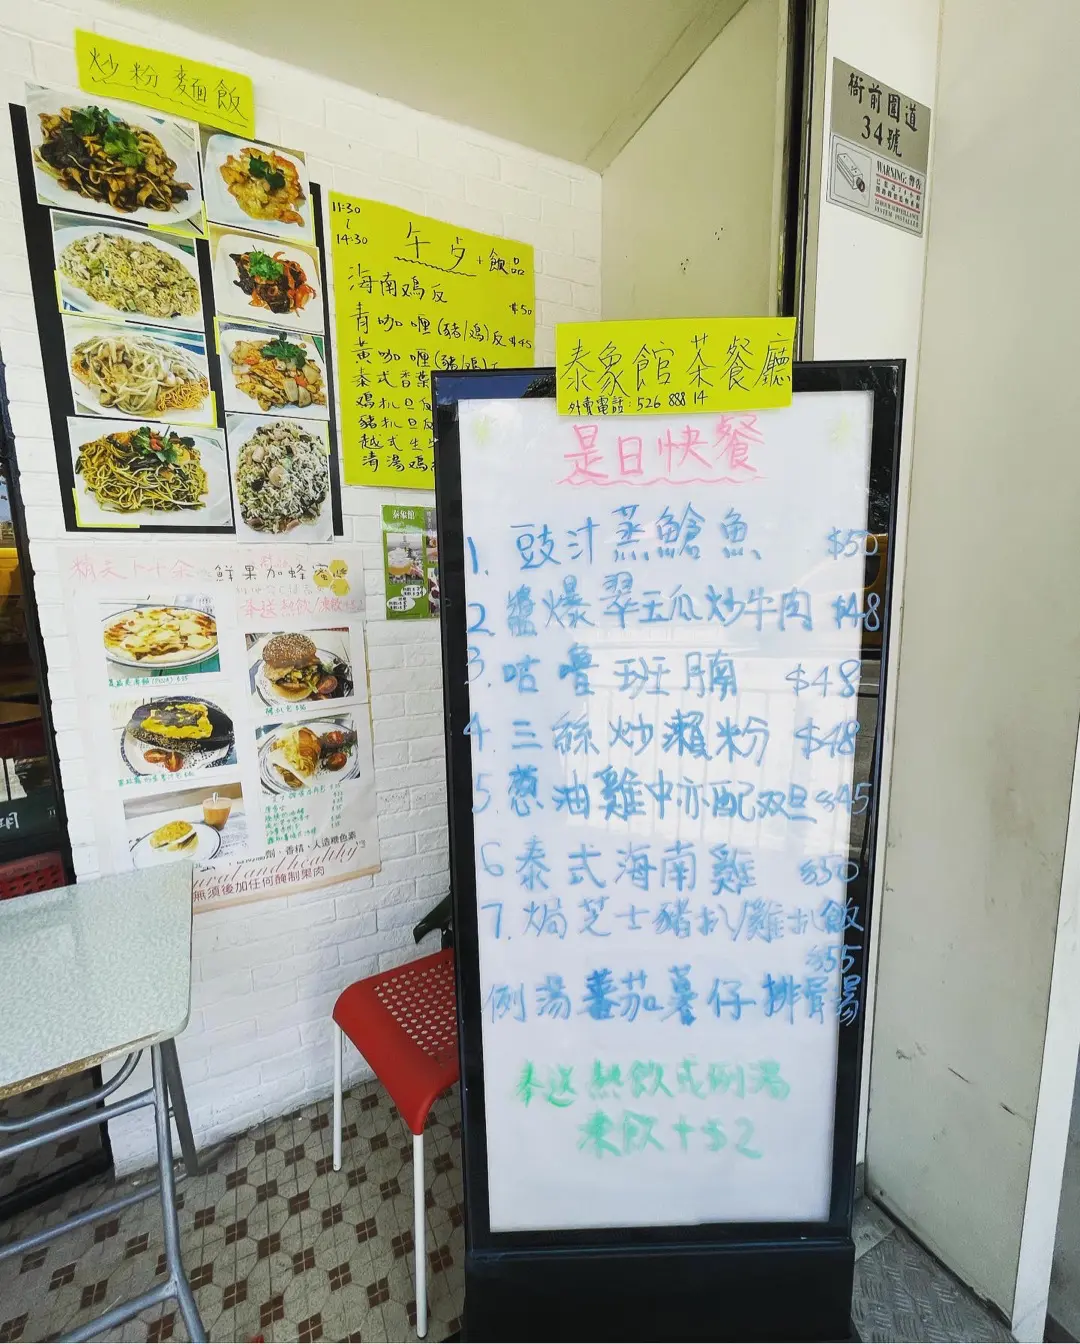 炒粉麵飯
11:30
14:30
午歺+飲品
海南鸡反
$50
青咖喱(豬/鸡)反 $45
黃咖喱(豬/鸡)
泰式香葉
鸡扒旦反
豬扒旦反
越式生
清湯鸡
衙前圍道
34號
WARNING: 警告
泰象館
泰象館茶餐廳
外賣電話: 526 888 14
是日快餐
1. 豉汁蒸鱠魚 $50
2. 醬爆翠玉瓜炒牛肉 $48
3. 咕嚕班腩 $48
4. 三絲炒瀨粉 $48
5. 蔥油雞中亦配双旦 $45
6 泰式海南雞 $50
7. 焗芝士豬扒/雞扒飯
$55
例湯蕃茄薯仔排骨湯
奉送熱飲或例湯
凍飲+$2
鮮果加蜂蜜
奉送熱飲/凍飲+$2
劑、香精、人造糖色素
ural and healthy
無須後加任何醃制果肉